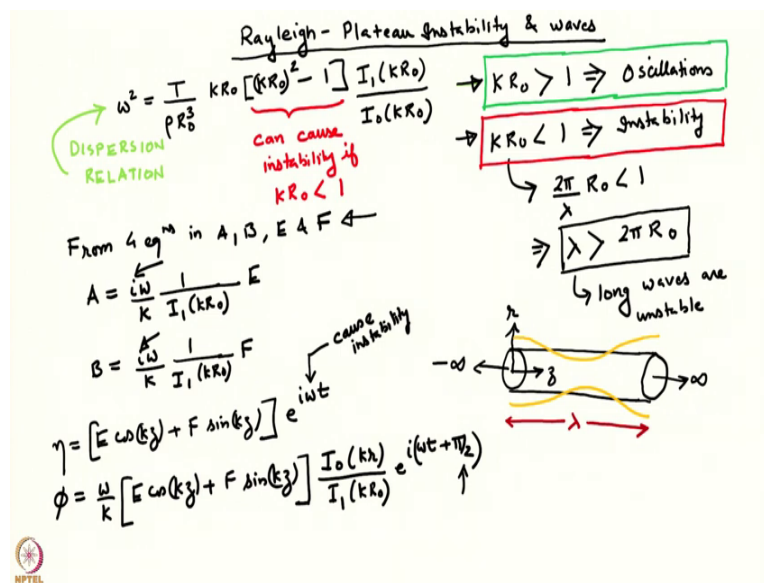 Rayleigh - Plateau Instability & waves
ω² = T/ρR₀³ kR₀ [(kR₀)² - 1] I₁(kR₀)/I₀(kR₀)
DISPERSION
RELATION
can cause
instability if
kR₀ < 1
→ kR₀ > 1 ⇒ Oscillations
→ kR₀ < 1 ⇒ Instability
↳ 2π/λ R₀ < 1
⇒ λ > 2πR₀
↳ long waves are
unstable
From 4 eqⁿˢ in A, B, E & F ←
A = iω/k 1/I₁(kR₀) E
B = iω/k 1/I₁(kR₀) F
cause
instability
η = [E cos(kz) + F sin(kz)] e^{iωt}
φ = ω/k [E cos(kz) + F sin(kz)] I₀(kr)/I₁(kR₀) e^{i(ωt + π/2)}
r
-∞ ← → z → ∞
← λ →
NPTEL